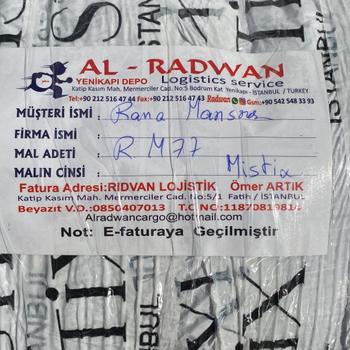 AL - RADWAN
YENİKAPI DEPO Logistics service
Katip Kasım Mah. Mermerciler Cad. No:5 Bodrum Kat Yenikapı - İSTANBUL / TURKEY
Tel:+90 212 516 47 44 Fax:+90 212 516 47 43 Radwan Gsm:+90 542 548 33 93
MÜŞTERİ İSMİ : Rana Mansour
FİRMA İSMİ :
MAL ADETİ : R M77
MALIN CİNSİ : Mistix
Fatura Adresi:RIDVAN LOJİSTİK Ömer ARTIK
Katip Kasım Mah. Mermerciler Cad. No:5/1 Fatih / İSTANBUL
Beyazıt V.D.:0850407013 T.C NO:11870819814
Alradwancargo@hotmail.com
Not: E-faturaya Geçilmiştir
İSTANBUL